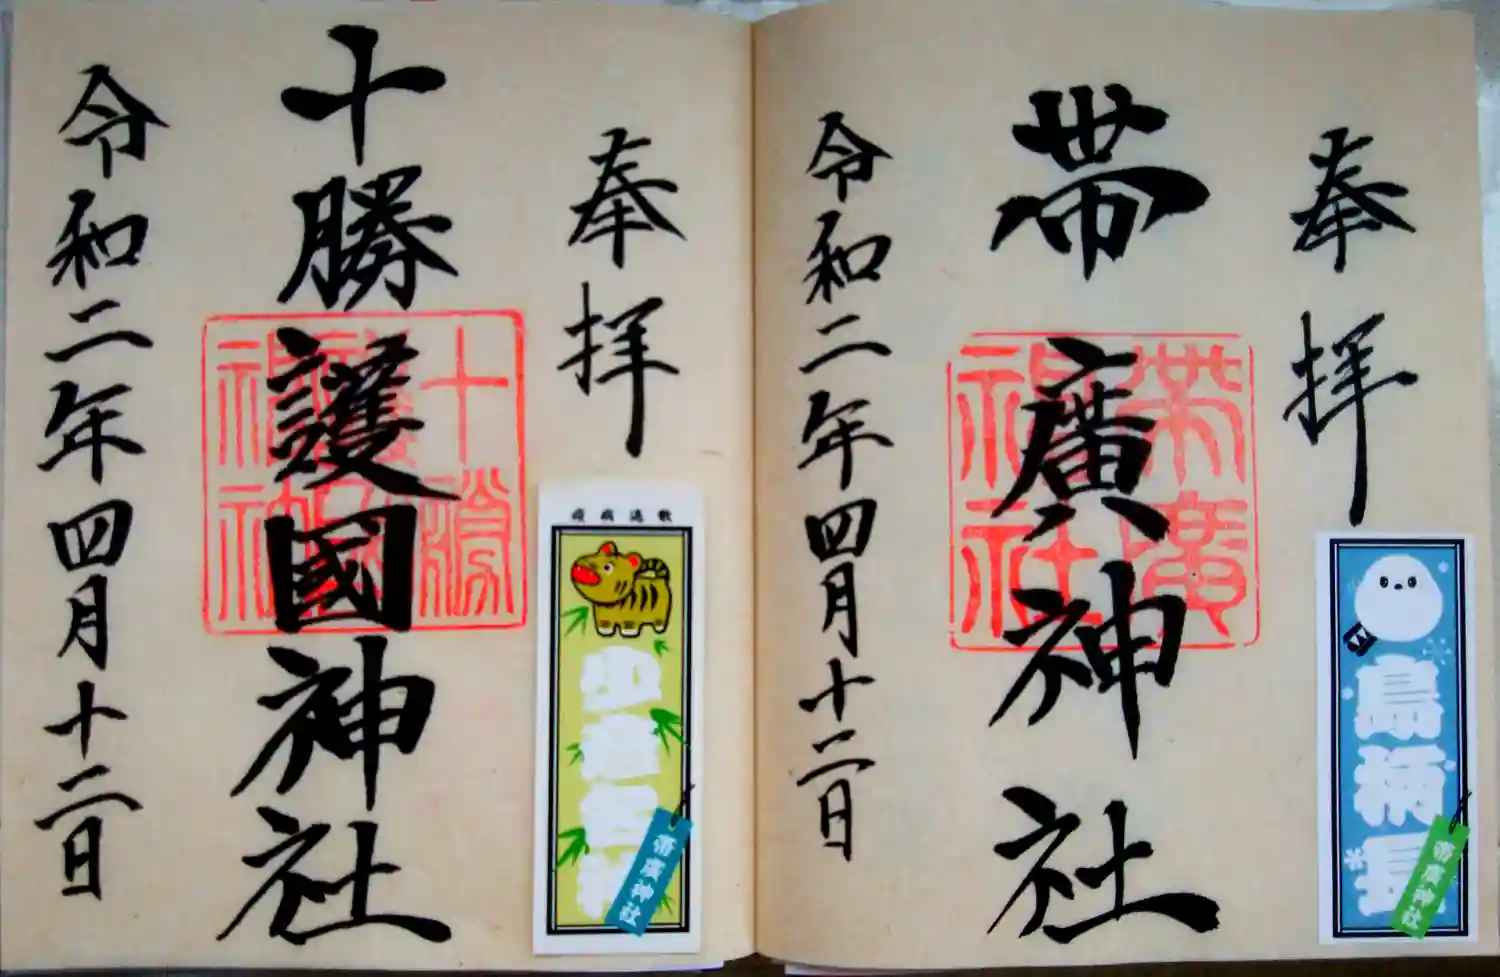 奉拝
帯廣神社
令和二年四月十二日
帯廣神社
島柄長
帯廣神社
奉拝
十勝護國神社
令和二年四月十二日
十勝護國神社
帯廣神社